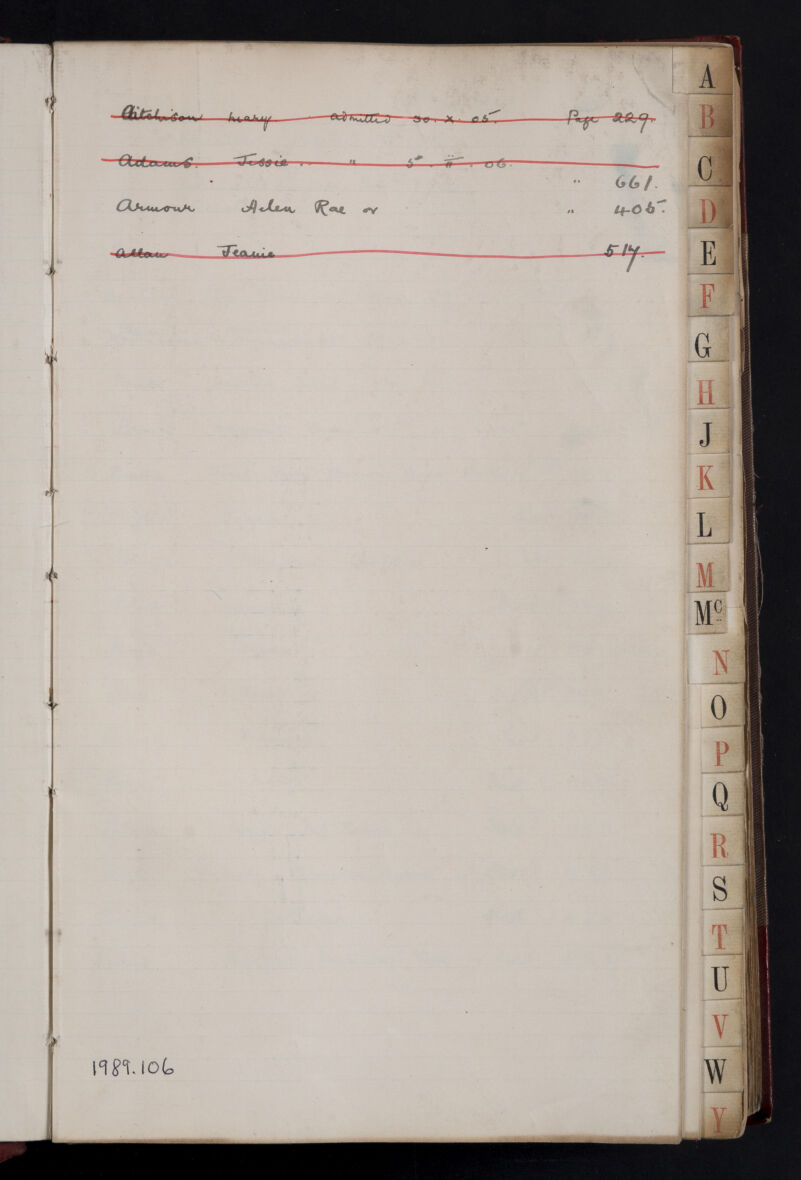 Aitchison Mary admitted 30. X. 05. Page 229.
Adams. Jessie .. " 5th. II. 06.
" 661.
Armour Helen Rae or " 405.
Allan Jeanie 517.
1989.106
A
B
C
D
E
F
G
H
J
K
L
M
Mc
N
O
P
Q
R
S
T
U
V
W
Y